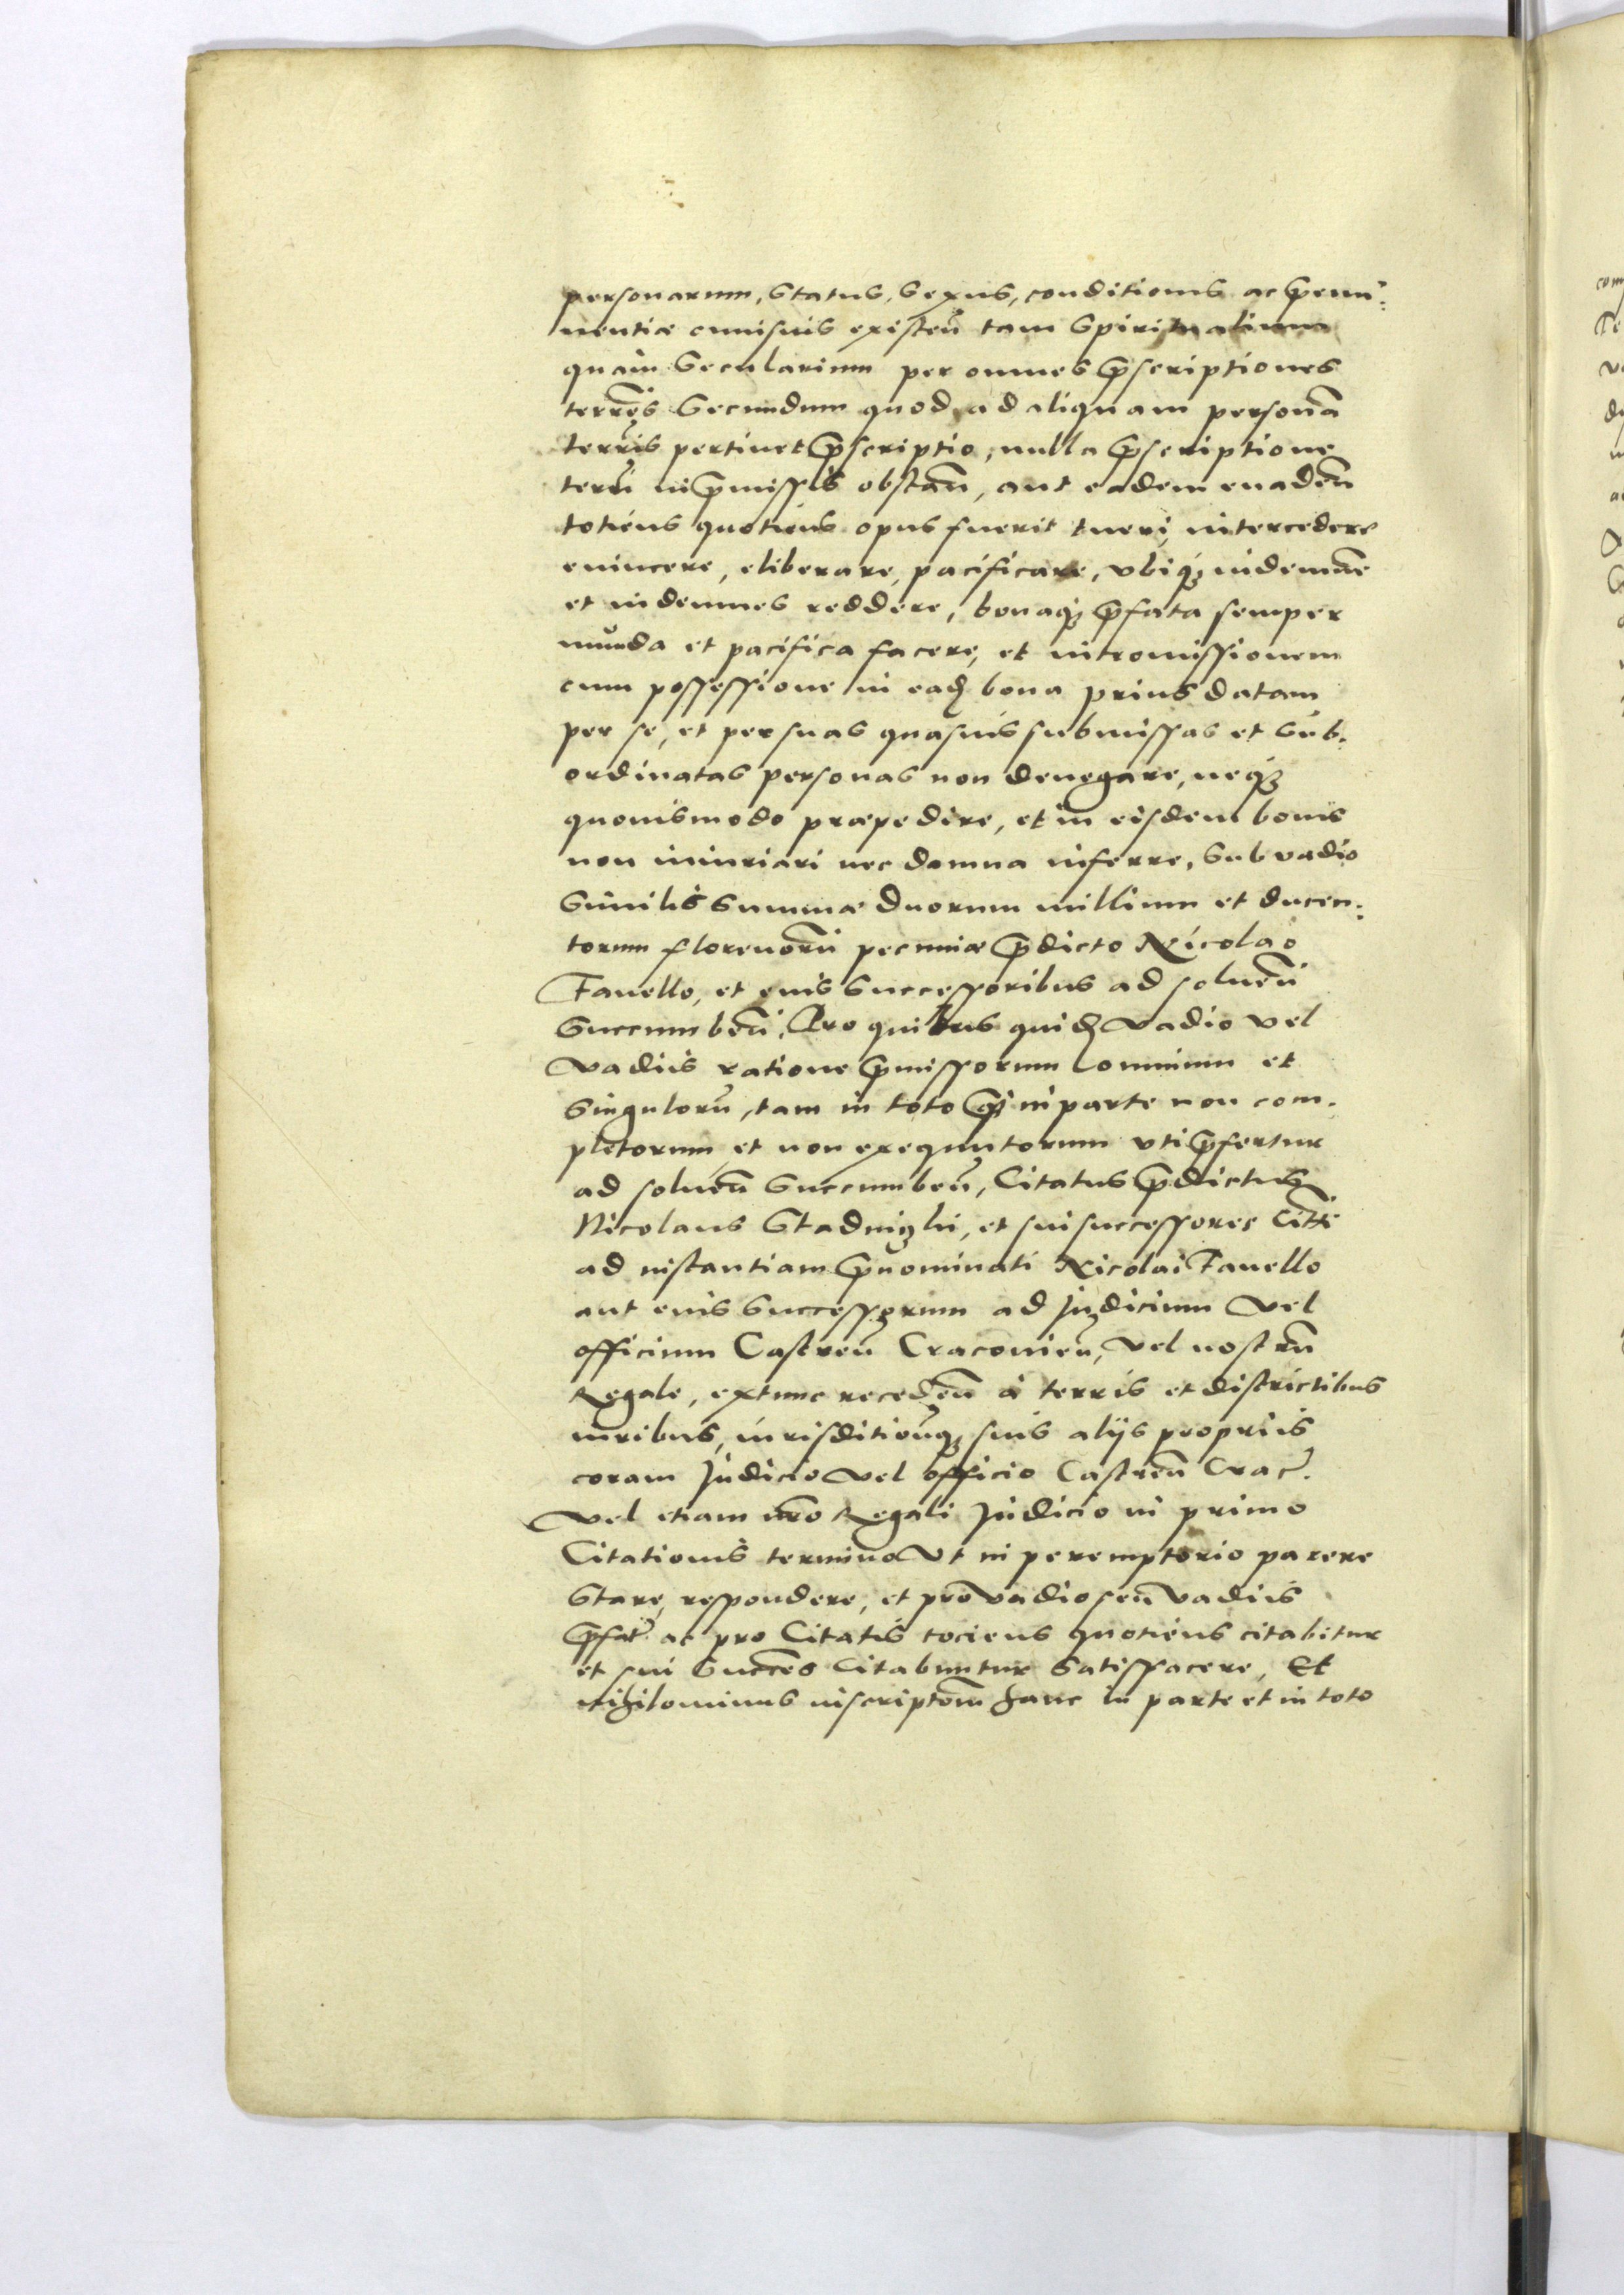 personarum, Status, Sexus, conditionis ac p̄emi:
nentiæ cuiusuis existeñ tam Spiritualium
quàm Secularium per omnes p̄scriptiones
terrr̄es Secundum quod ad aliquam personā
terrīs pertinet p̄scriptio, nulla p̄scriptione
terrī in p̄missis obstañ, aut eadem euadeñ
totiens quotiens opus fuerit tueri, intercedere
euincere, eliberare, pacificare, vbiq₃ indemnē
et indemnes reddere, bonaq₃ p̄fata semper
munda et pacifica facere, et intromissionem
cum possessione in eađ bona prius datam
per se, et per suas quasuis submissas et sub.
ordinatas personas non denegare, neq₃
quouismodo præpedire, et in eisdem bonis
non iniuriari nec damna inferre, Sub vadio
Similis Summæ Duorum millium et ducen:
torum florenorū pecuniæ p̄dicto Nicolao
Fauello, et eius Successoribus ad solueñ
Succumbeñ. Pro quibus quiđ Vadio vel
Vadiis ratione p̄missorum omnium et
Singulorū, tam in toto q̄ in parte non com.
pletorum et non exequutorum vti p̄fertur
ad solueñ Succumbeñ, Citatus p̄dictus
Nicolaus Stadniczki, et sui successores Citti
ad instantiam p̄nominati Nicolai Fauello
aut eius Successorum ad Judicium Vel
officium Castreñ Cracouieñ, Vel nostrū
Regale, extunc recedeñ à terris et districtibus
iuribus, iurisditionuq₃ suis alijs propriis
coram Judicio Vel officio Castreñ Crac̃.
Vel etiam nr̄o Regali Judicio in primo
Citationis termino Vt in peremptorio parere
Stare, respondere, et pro Vadio seu Vadiis
p̄fat̃ ac pro Citatis tociens quotiens citabitur
et sui Succēs Citabuntur Satisfacere, Et
nihilominus inscriptōem hanc in parte et in toto